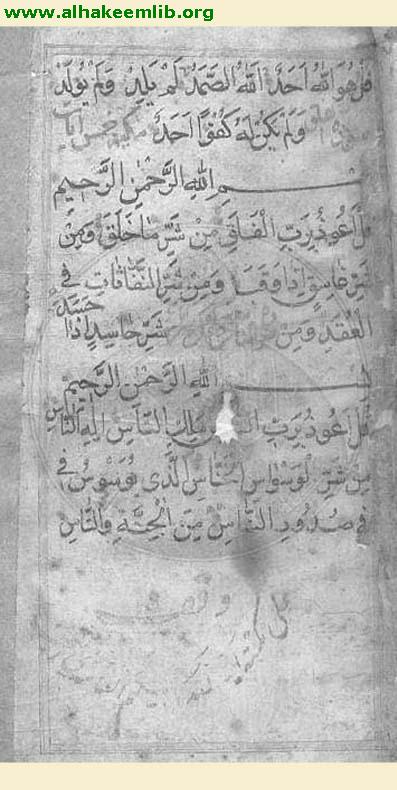 www.alhakeemlib.org
قل هو الله احد الله الصمد لم يلد ولم يولد
ولم يكن له كفوا احد
بسم الله الرحمن الرحيم
قل اعوذ برب الفلق من شر ما خلق ومن
شر غاسق اذا وقب ومن شر النفاثات في
العقد ومن شر حاسد اذا حسد
بسم الله الرحمن الرحيم
قل اعوذ برب ملك الناس اله الناس
من شر لوسواس الخناس الذي يوسوس في
في صدور الناس من الجنة والناس
وقف